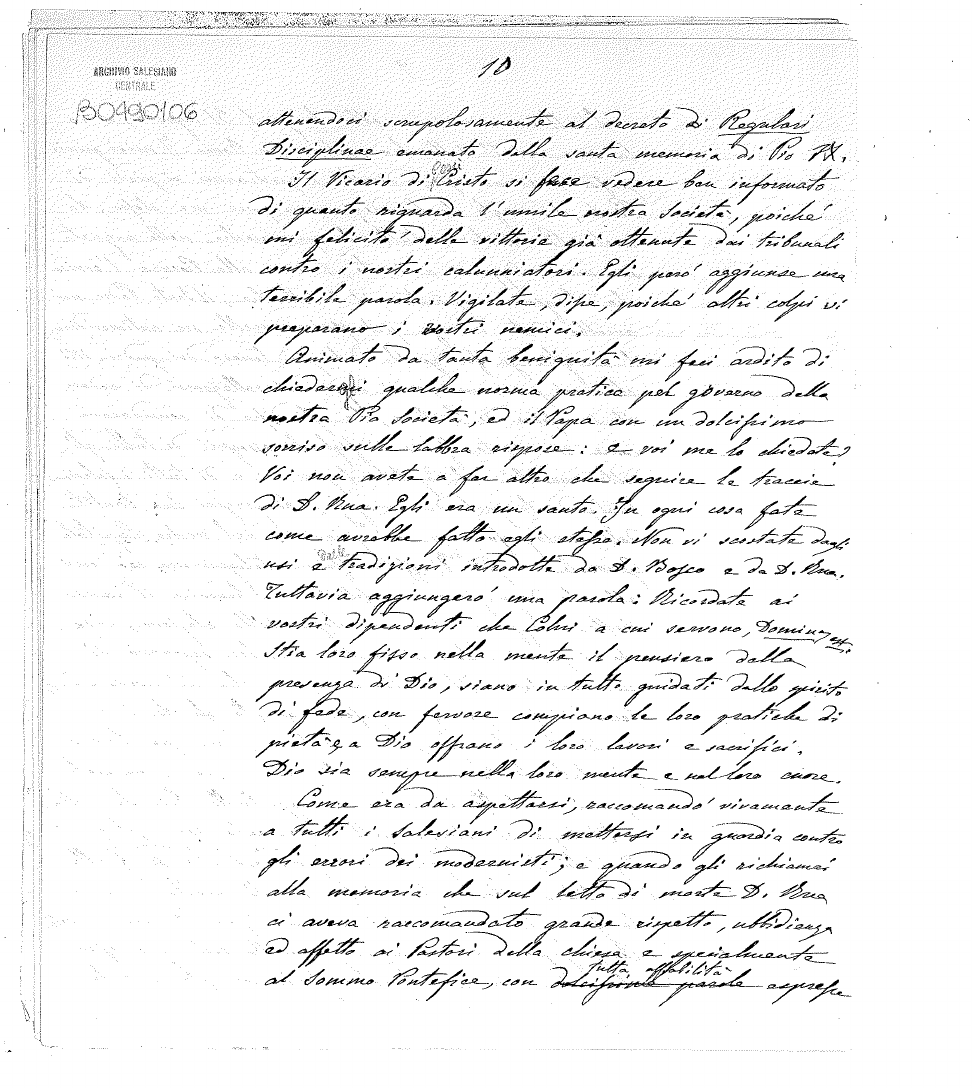 10
ARCHIVIO SALESIANO
CENTRALE
B0490106
attenendoci scrupolosamente al decreto di Regulari
Disciplinae emanato dalla santa memoria di Pio IX.
Il Vicario di Gesù Cristo si fece vedere ben informato
di quanto riguarda l'umile nostra Società, poiché
mi felicitò delle vittorie già ottenute dai tribunali
contro i nostri calunniatori. Egli però aggiunse una
terribile parola. Vigilate, disse, poiché altri colpi vi
preparano i vostri nemici.
Animato da tanta benignità mi feci ardito di
chiedergli qualche norma pratica pel governo della
nostra Pia Società, ed il Papa con un dolcissimo
sorriso sulle labbra rispose: e voi me lo chiedete?
Voi non avete a far altro che seguire le traccie
di D. Rua. Egli era un santo. In ogni cosa fate
come avrebbe fatto egli stesso. Non vi scostate dagli
usi e dalle tradizioni introdotte da D. Bosco e da D. Rua.
Tuttavia aggiungerò una parola: Ricordate ai
vostri dipendenti che Colui a cui servono, Dominus est.
Stia loro fisso nella mente il pensiero della
presenza di Dio, siano in tutto guidati dallo spirito
di fede, con fervore compiano le loro pratiche di
pietà e a Dio offrano i loro lavori e sacrifici.
Dio sia sempre nella loro mente e nel loro cuore.
Come era da aspettarsi, raccomandò vivamente
a tutti i Salesiani di mettersi in guardia contro
gli errori dei modernisti; e quando gli richiamai
alla memoria che sul letto di morte D. Rua
ci aveva raccomandato grande rispetto, ubbidienza
ed affetto ai Pastori della chiesa e specialmente
tutta affabilità
al Sommo Pontefice, con dolcissime parole espresse